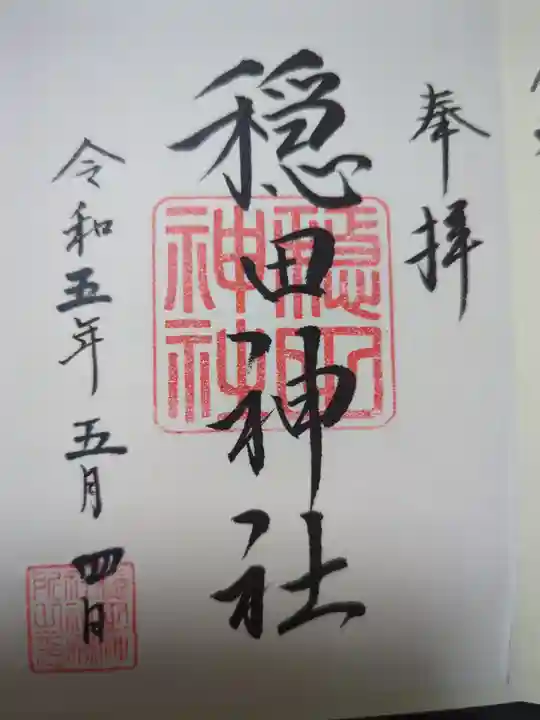 奉拝
穏田神社
穏田
神社
令和五年五月四日